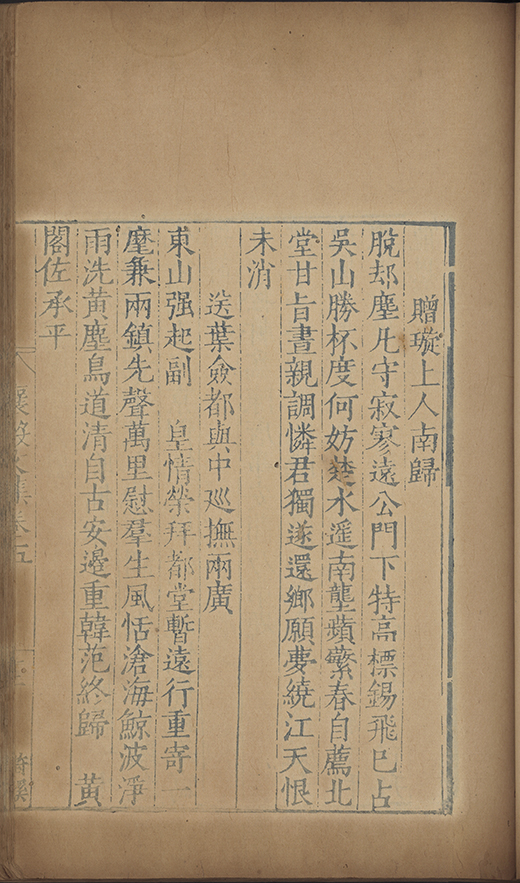 贈璇上人南歸
脫却塵凡守寂寥遠公門下特高標錫飛已占
吳山勝杯度何妨楚水遥南壟蘋蘩春自薦北
堂甘旨晝親調憐君獨遂還鄉願夢繞江天恨
未消
送葉僉都與中巡撫兩廣
東山强起副　皇情榮拜都堂暫遠行重寄一
麾兼兩鎮先聲萬里慰羣生風恬滄海鯨波淨
雨洗黃塵鳥道清自古安邉重韓范終歸　黃
閣佐承平